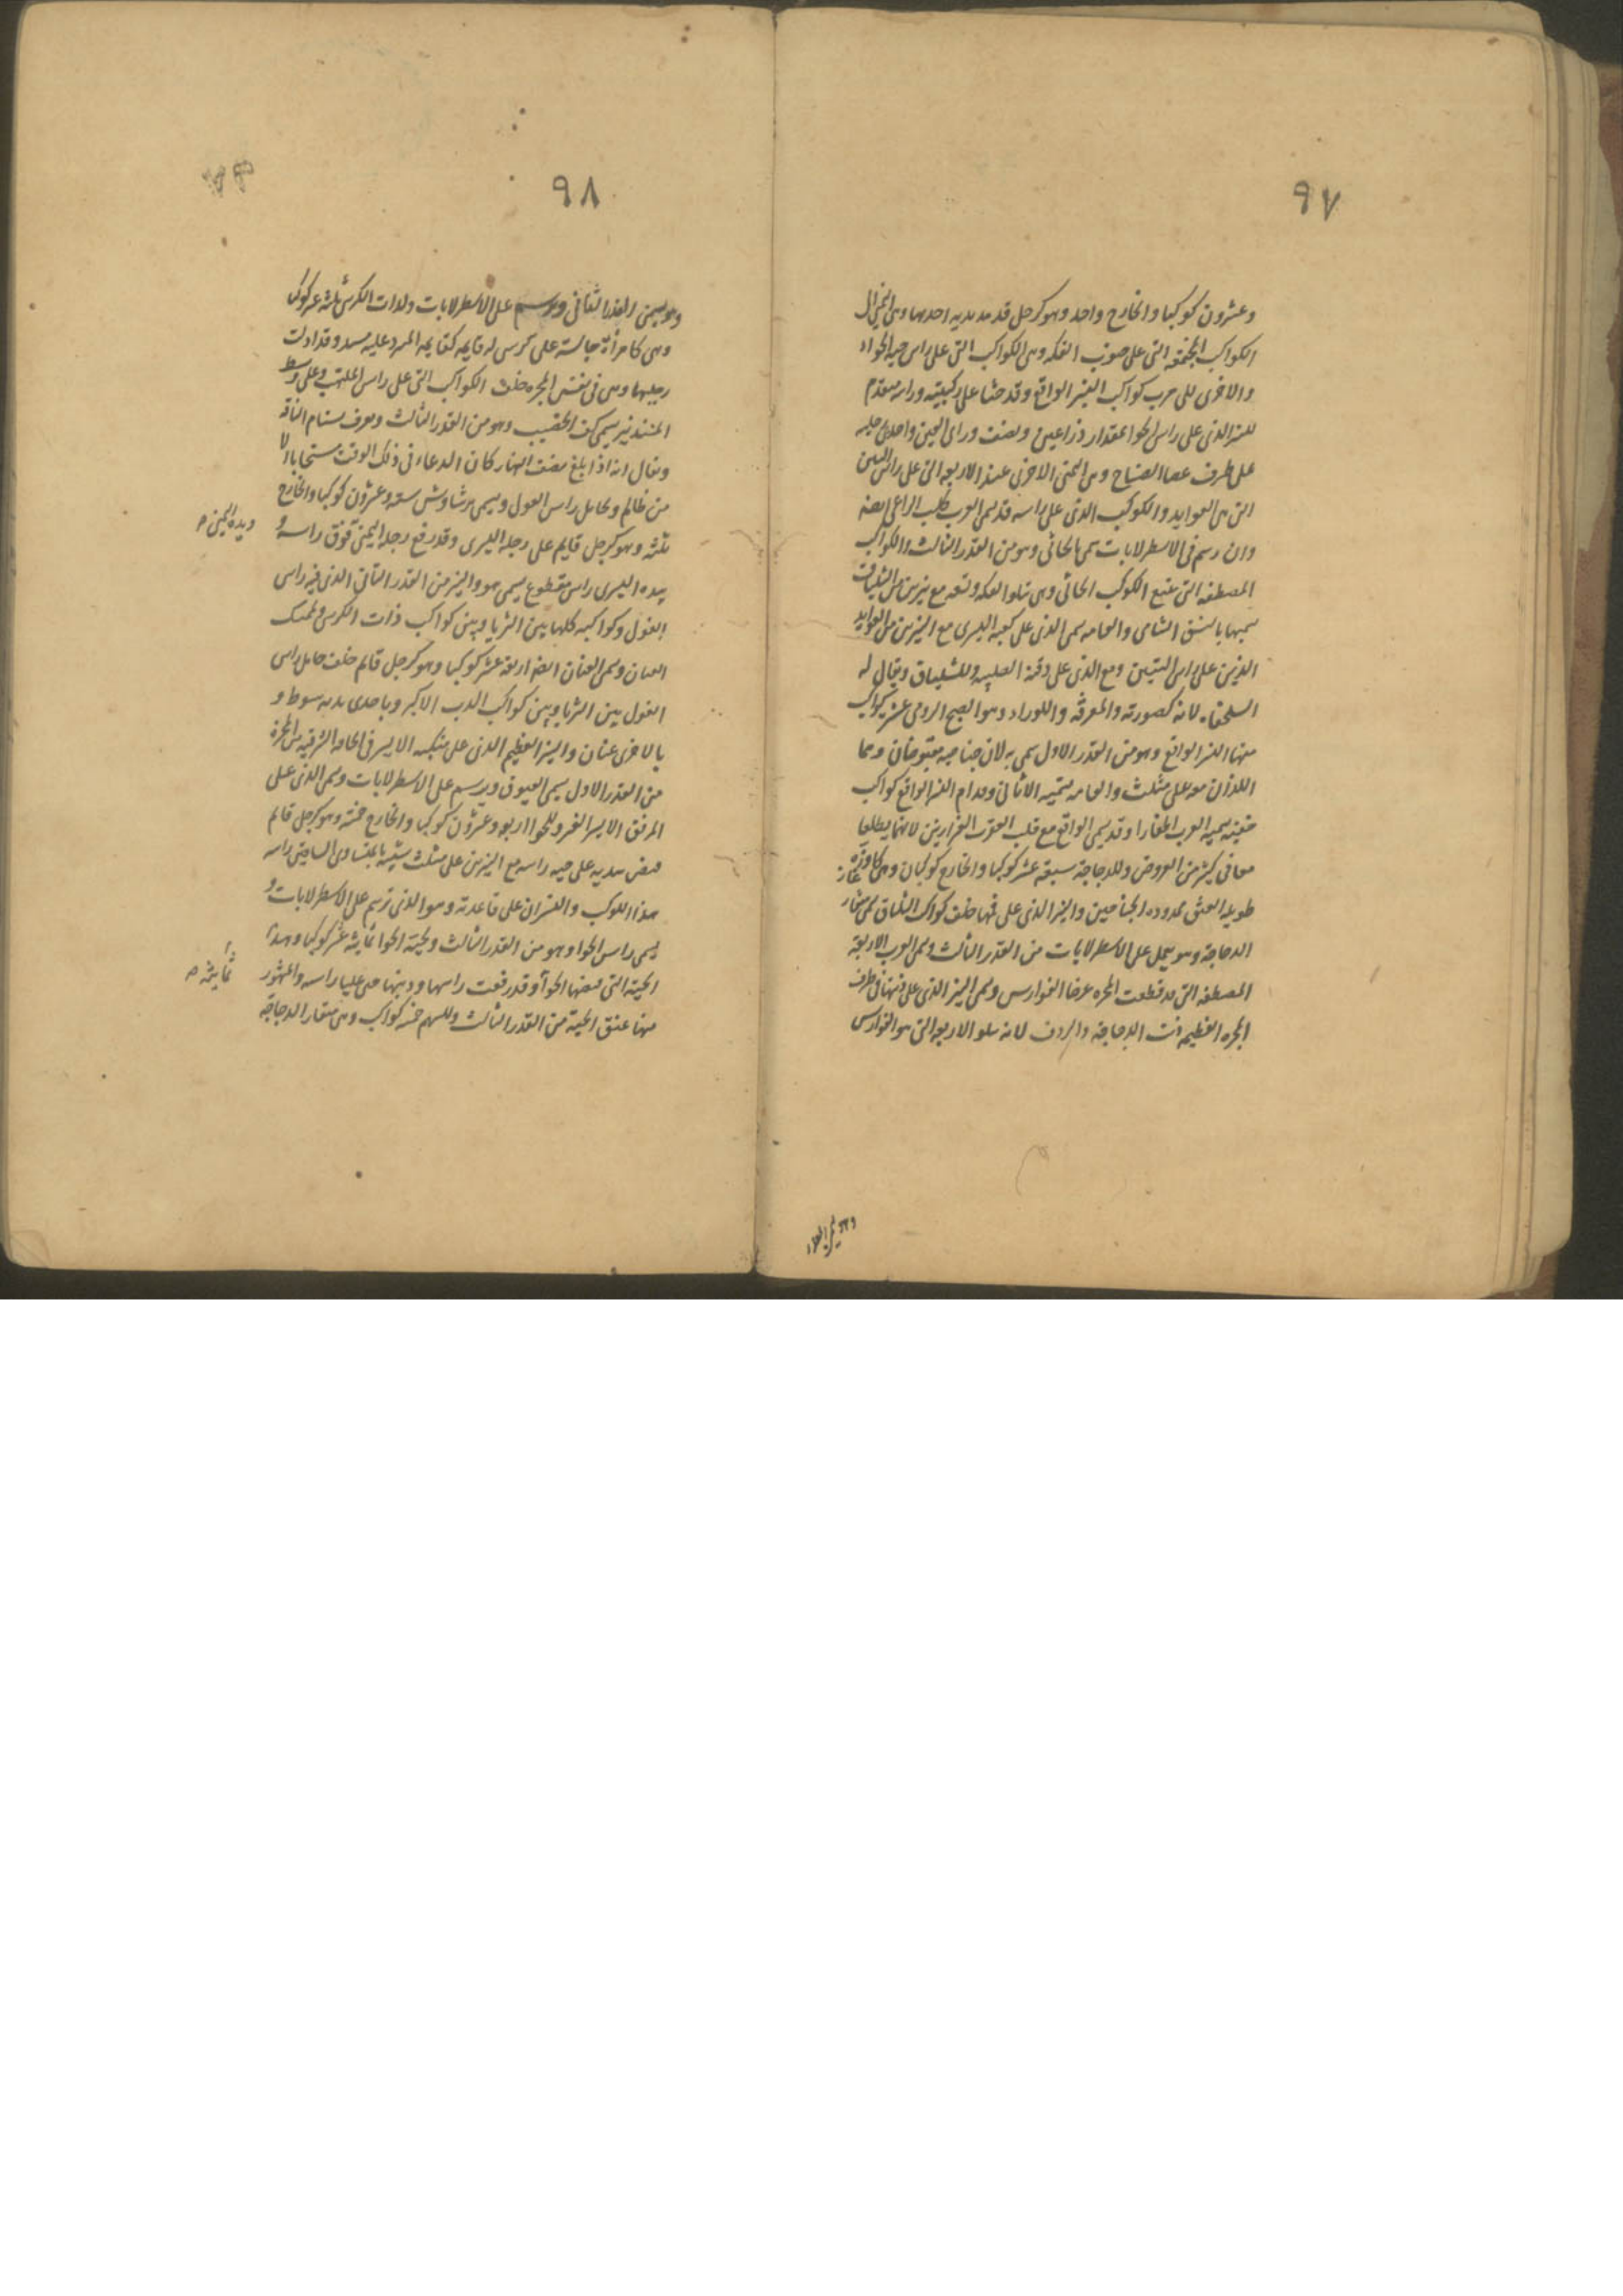 ٩٧
وعشرون كوكبا والخارج واحد وهو كرجل قد مد يديه احدها وهى اليمنى الى
الكواكب المجتمعة التى على جنوب الفكه وهى الكواكب التى على راس حية الحواء
والاخرى الى قرب كواكب النسر الواقع وقد جثا على ركبتيه وراسه متقدم
للنير الذى على راس الحوا بمقدار ذراعين ونصف وراى العين واحدى رجليه
على طرف عصا الصياح وهى اليمنى والاخرى عند الاربعة التى على راس التنين
التى هى العوايد والكوكب الذى على راسه قد يسمى العرب كلب الراعى ايضه
وان رسم فى الاسطرلابات سمى الجاثى وهو من القدر الثالث والكواكب
المصطفه التى تتبع الكوكب الجاثى وهى تتلو الفكه وتقع مع نيرين من الشلياق
يسميها بالنسق الشامى والعامه يسمى الذى على كعبه اليسرى مع النيرين من العوايد
الذين على راس التنين ومع الذى على الصليب وللشلياق ويقال له
السلحفاه لانه كصورته والمعرفة واللوراء وهو الصبح الرومى عشرة كواكب
منها النسر الواقع وهو من القدر الاول سمى به لان جناحيه مقبوضان وهما
اللذان معه على مثلث والعامه تسميه الاثافى وقدام النسر الواقع كواكب
خفيه يسميه العرب الاظفار وقد يسمى الواقع مع قلب العقرب الهرارين لانهما يطلعان
معا فى كثير من العروض وللدجاجة سبعة عشر كوكبا والخارج كوكبان وهى كاوزه
طويلة العنق ممدوده الجناحين والنير الذى على فمها خلف كواكب الشلياق يسمى منقار
الدجاجة وهو يعمل على الاسطرلابات من القدر الثالث ويسمى العرب الاربعة
المصطفه التى قد قطعت المجره عرضا الفوارس ويسمى النير الذى على ذنبها فى طرف
المجره العظيمه ذنب الدجاجة والردف لانه يتلو الاربعة التى هو الفوارس
٩٨
وهو يسمى القدر الثانى ويرسم على الاسطرلابات ولذات الكرسى ثلثة عشر كوكبا
وهى كامرأة جالسة على كرسى له قايمه كقايمه المنبر وعليه مسند وقد ادلت
رجليها وهى فى نفس المجره خلف الكواكب التى على راس الملتهب وعلى وسط
المسند نير يسمى كف الخضيب وهو من القدر الثالث ويعرف بسنام الناقة
ويقال انه اذا بلغ نصف النهار كان الدعاء فى ذلك الوقت مستجابا الا
من ظالم ولحامل راس الغول ويسمى برشاوش ستة وعشرون كوكبا والخارج
ثلثه وهو كرجل قايم على رجله اليسرى وقد رفع رجله اليمنى فوق راسه و
ويده اليمنى ص
بيده اليسرى راس مقطوع يسمى هو والنير من القدر الثانى الذى فيه راس
الغول وكواكبه كلها بين الثريا وبين كواكب ذات الكرسى ولممسك
العنان ويسمى العنان ايضا اربعة عشر كوكبا وهو كرجل قايم خلف حامل راس
الغول بين الثريا وبين كواكب الدب الاكبر وباحدى يديه سوط و
بالاخرى عنان والنير العظيم الذى على منكبه الايسر فى الحافة الشرقيه من المجرة
من القدر الاول يسمى العيوق ويرسم على الاسطرلابات ويسمى الذى على
المرفق الايسر العنز وللحوا اربعة وعشرون كوكبا والخارج خمسة وهو كرجل قايم
قبض بيديه على حيه راسه مع النيرين على مثلث شبيه بالمتساوى الساقين راسه
هذا الكوكب والنسران على قاعدته وهو الذى يرسم على الاسطرلابات و
يسمى راس الحوا وهو من القدر الثالث ولحية الحوا ثمانية عشر كوكبا وهذا
ثمانية ص
الحية التى قبضها الحوآ وقد رفعت راسها وذنبها حتى عليا راسه والمشهور
منها عنق الحية من القدر الثالث وللسهم خمسة كواكب وهى منقار الدجاجة